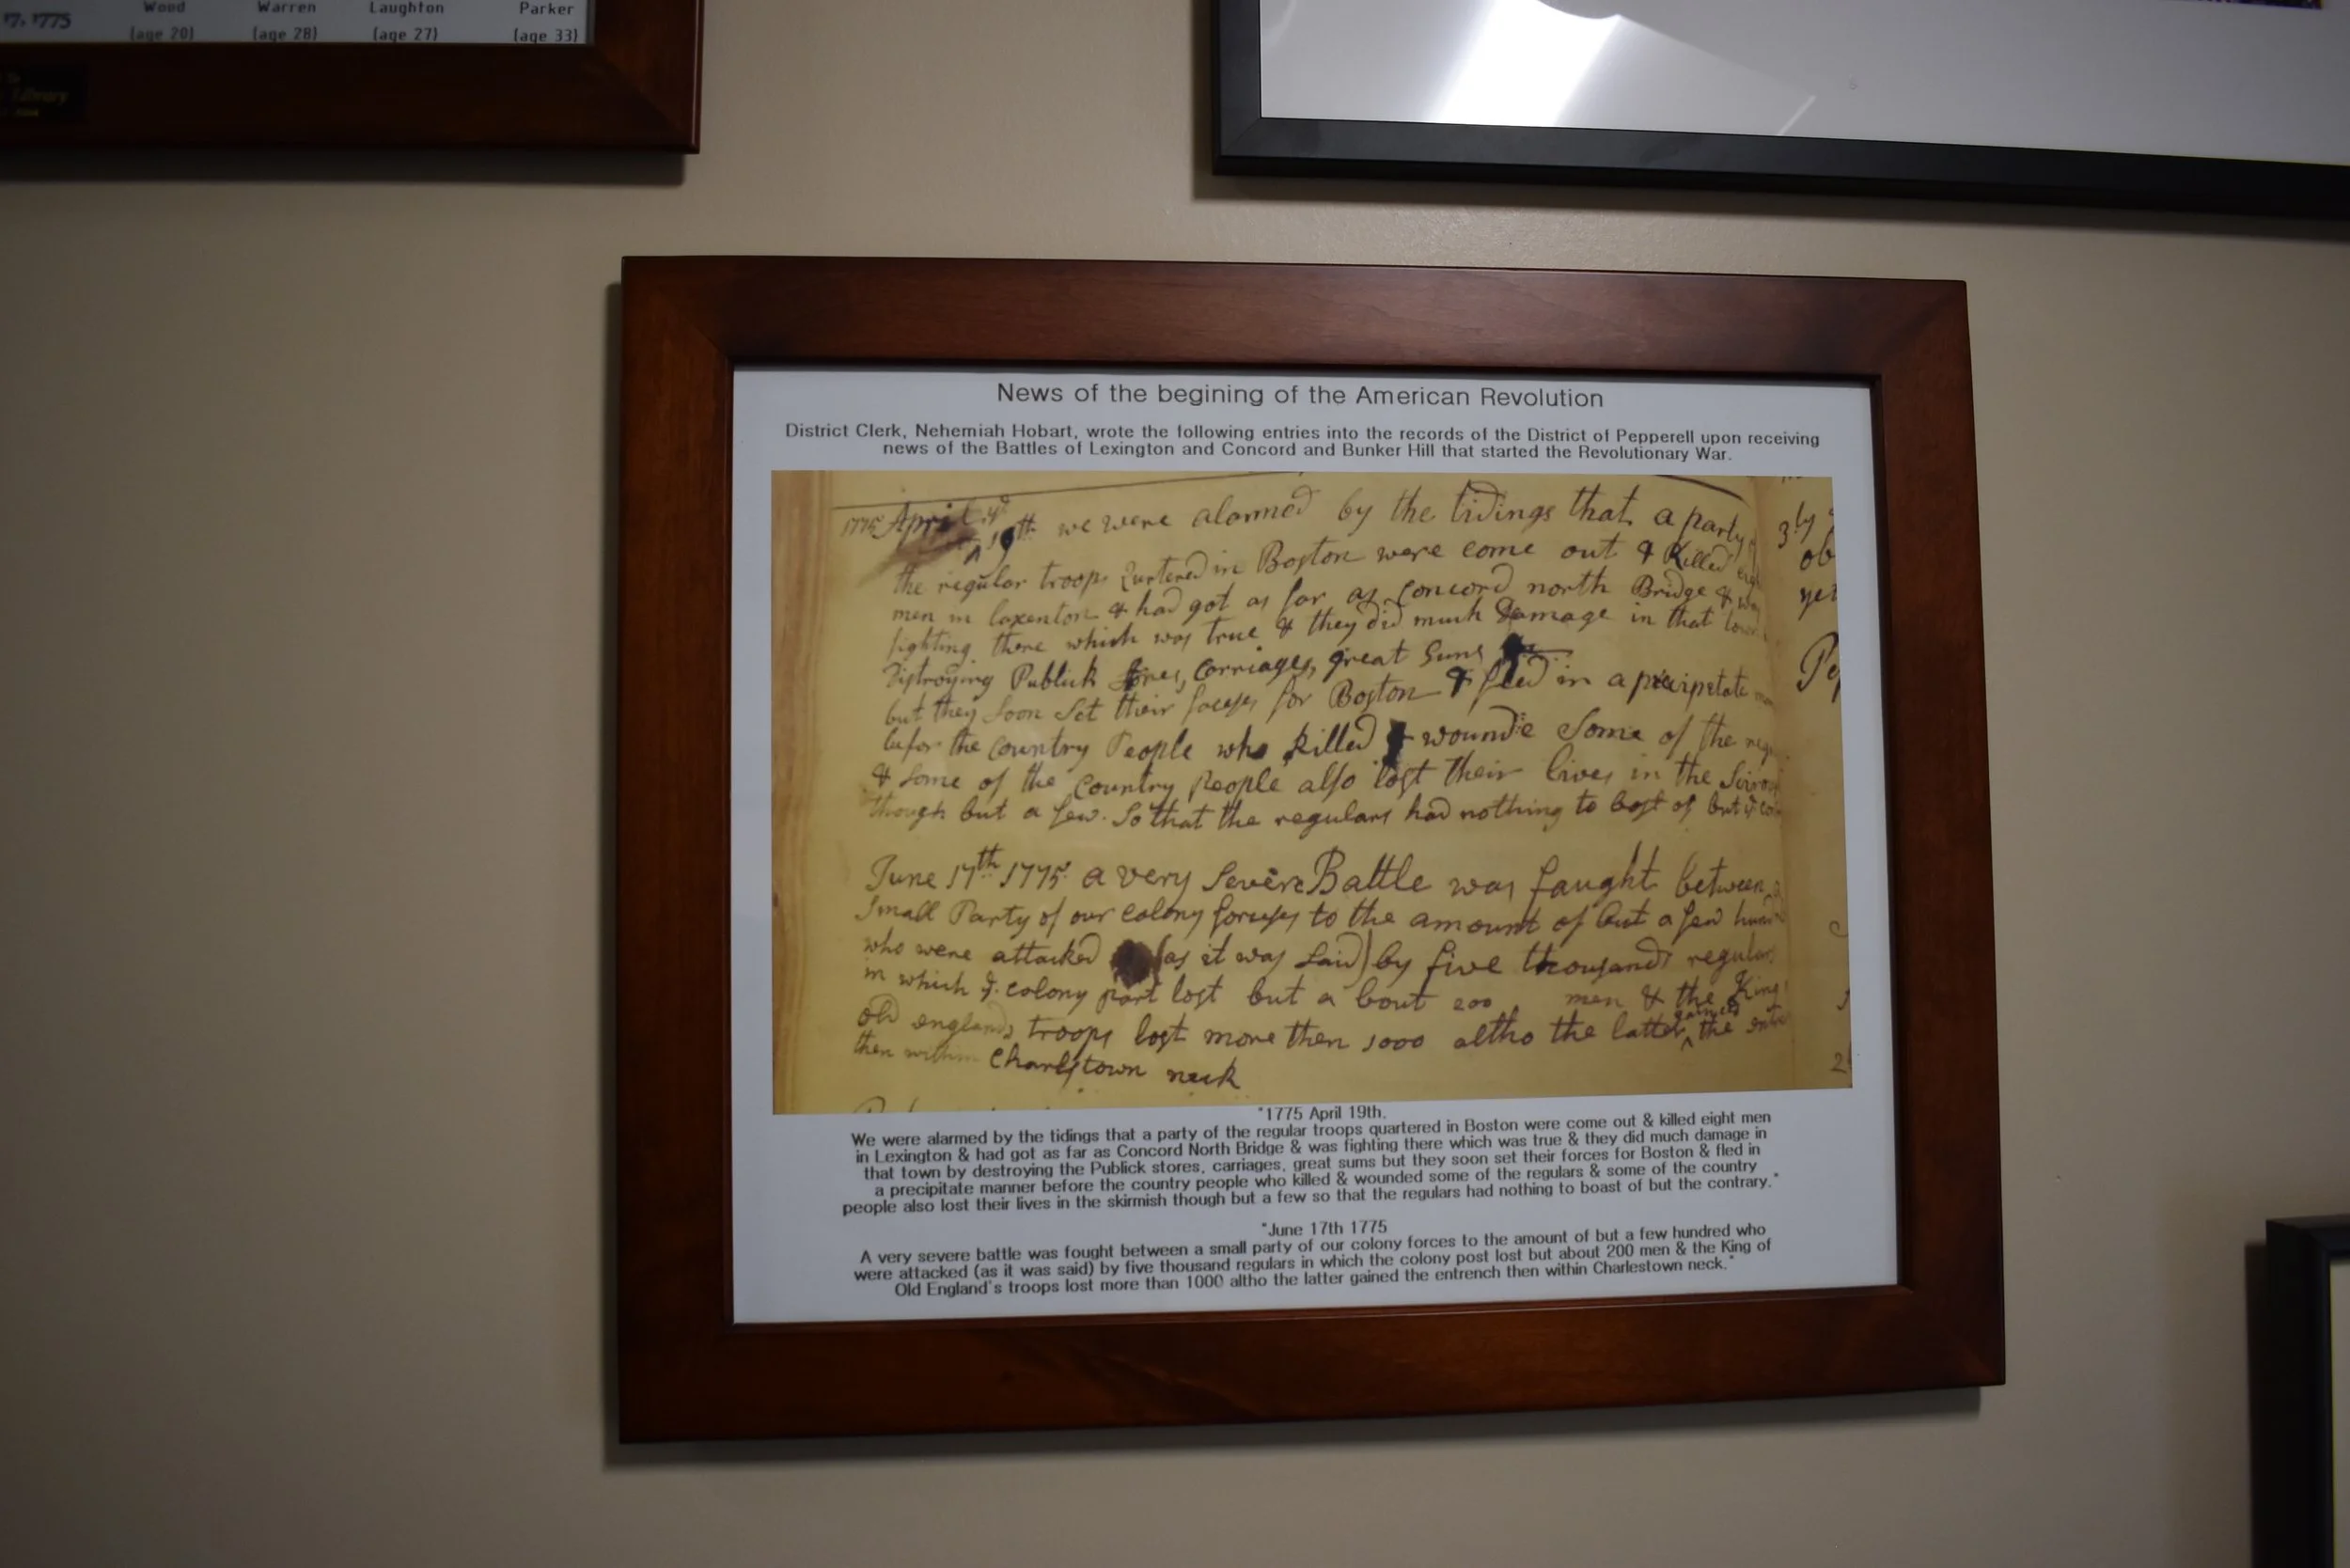 17, 1775
Wood Warren Laughton Parker
(age 20) (age 28) (age 27) (age 33)
Library
News of the begining of the American Revolution
District Clerk, Nehemiah Hobart, wrote the following entries into the records of the District of Pepperell upon receiving
news of the Battles of Lexington and Concord and Bunker Hill that started the Revolutionary War.
1775 April
19th we were alarmed by the tidings that a party
the regular troops Qurtered in Boston were come out & Killed
men in laxenton & had got as far as Concord north Bridge &
fighting there which was true & they did much Damage in that
Distroying Publick stores, Carriages, great Guns
but they soon set their faceses for Boston & fled in a precipetate
befor the Country People who killed & wounde some of the
& some of the Country People also lost their lives in the
though but a few. So that the regulars had nothing to bost of but
June 17th 1775 a very severe Battle was faught between a
Small Party of our colony forceses to the amount of but a few
who were attacked (as it was said) by five thousands regulars
in which ye colony part lost but a bout 200 men & the King
old englands troops lost more then 1000 altho the latter gained the
then within Charlstown neck
3ly
ob
yet
Pe
"1775 April 19th.
We were alarmed by the tidings that a party of the regular troops quartered in Boston were come out & killed eight men
in Lexington & had got as far as Concord North Bridge & was fighting there which was true & they did much damage in
that town by destroying the Publick stores, carriages, great sums but they soon set their forces for Boston & fled in
a precipitate manner before the country people who killed & wounded some of the regulars & some of the country
people also lost their lives in the skirmish though but a few so that the regulars had nothing to boast of but the contrary."
"June 17th 1775
A very severe battle was fought between a small party of our colony forces to the amount of but a few hundred who
were attacked (as it was said) by five thousand regulars in which the colony post lost but about 200 men & the King of
Old England's troops lost more than 1000 altho the latter gained the entrench then within Charlestown neck."